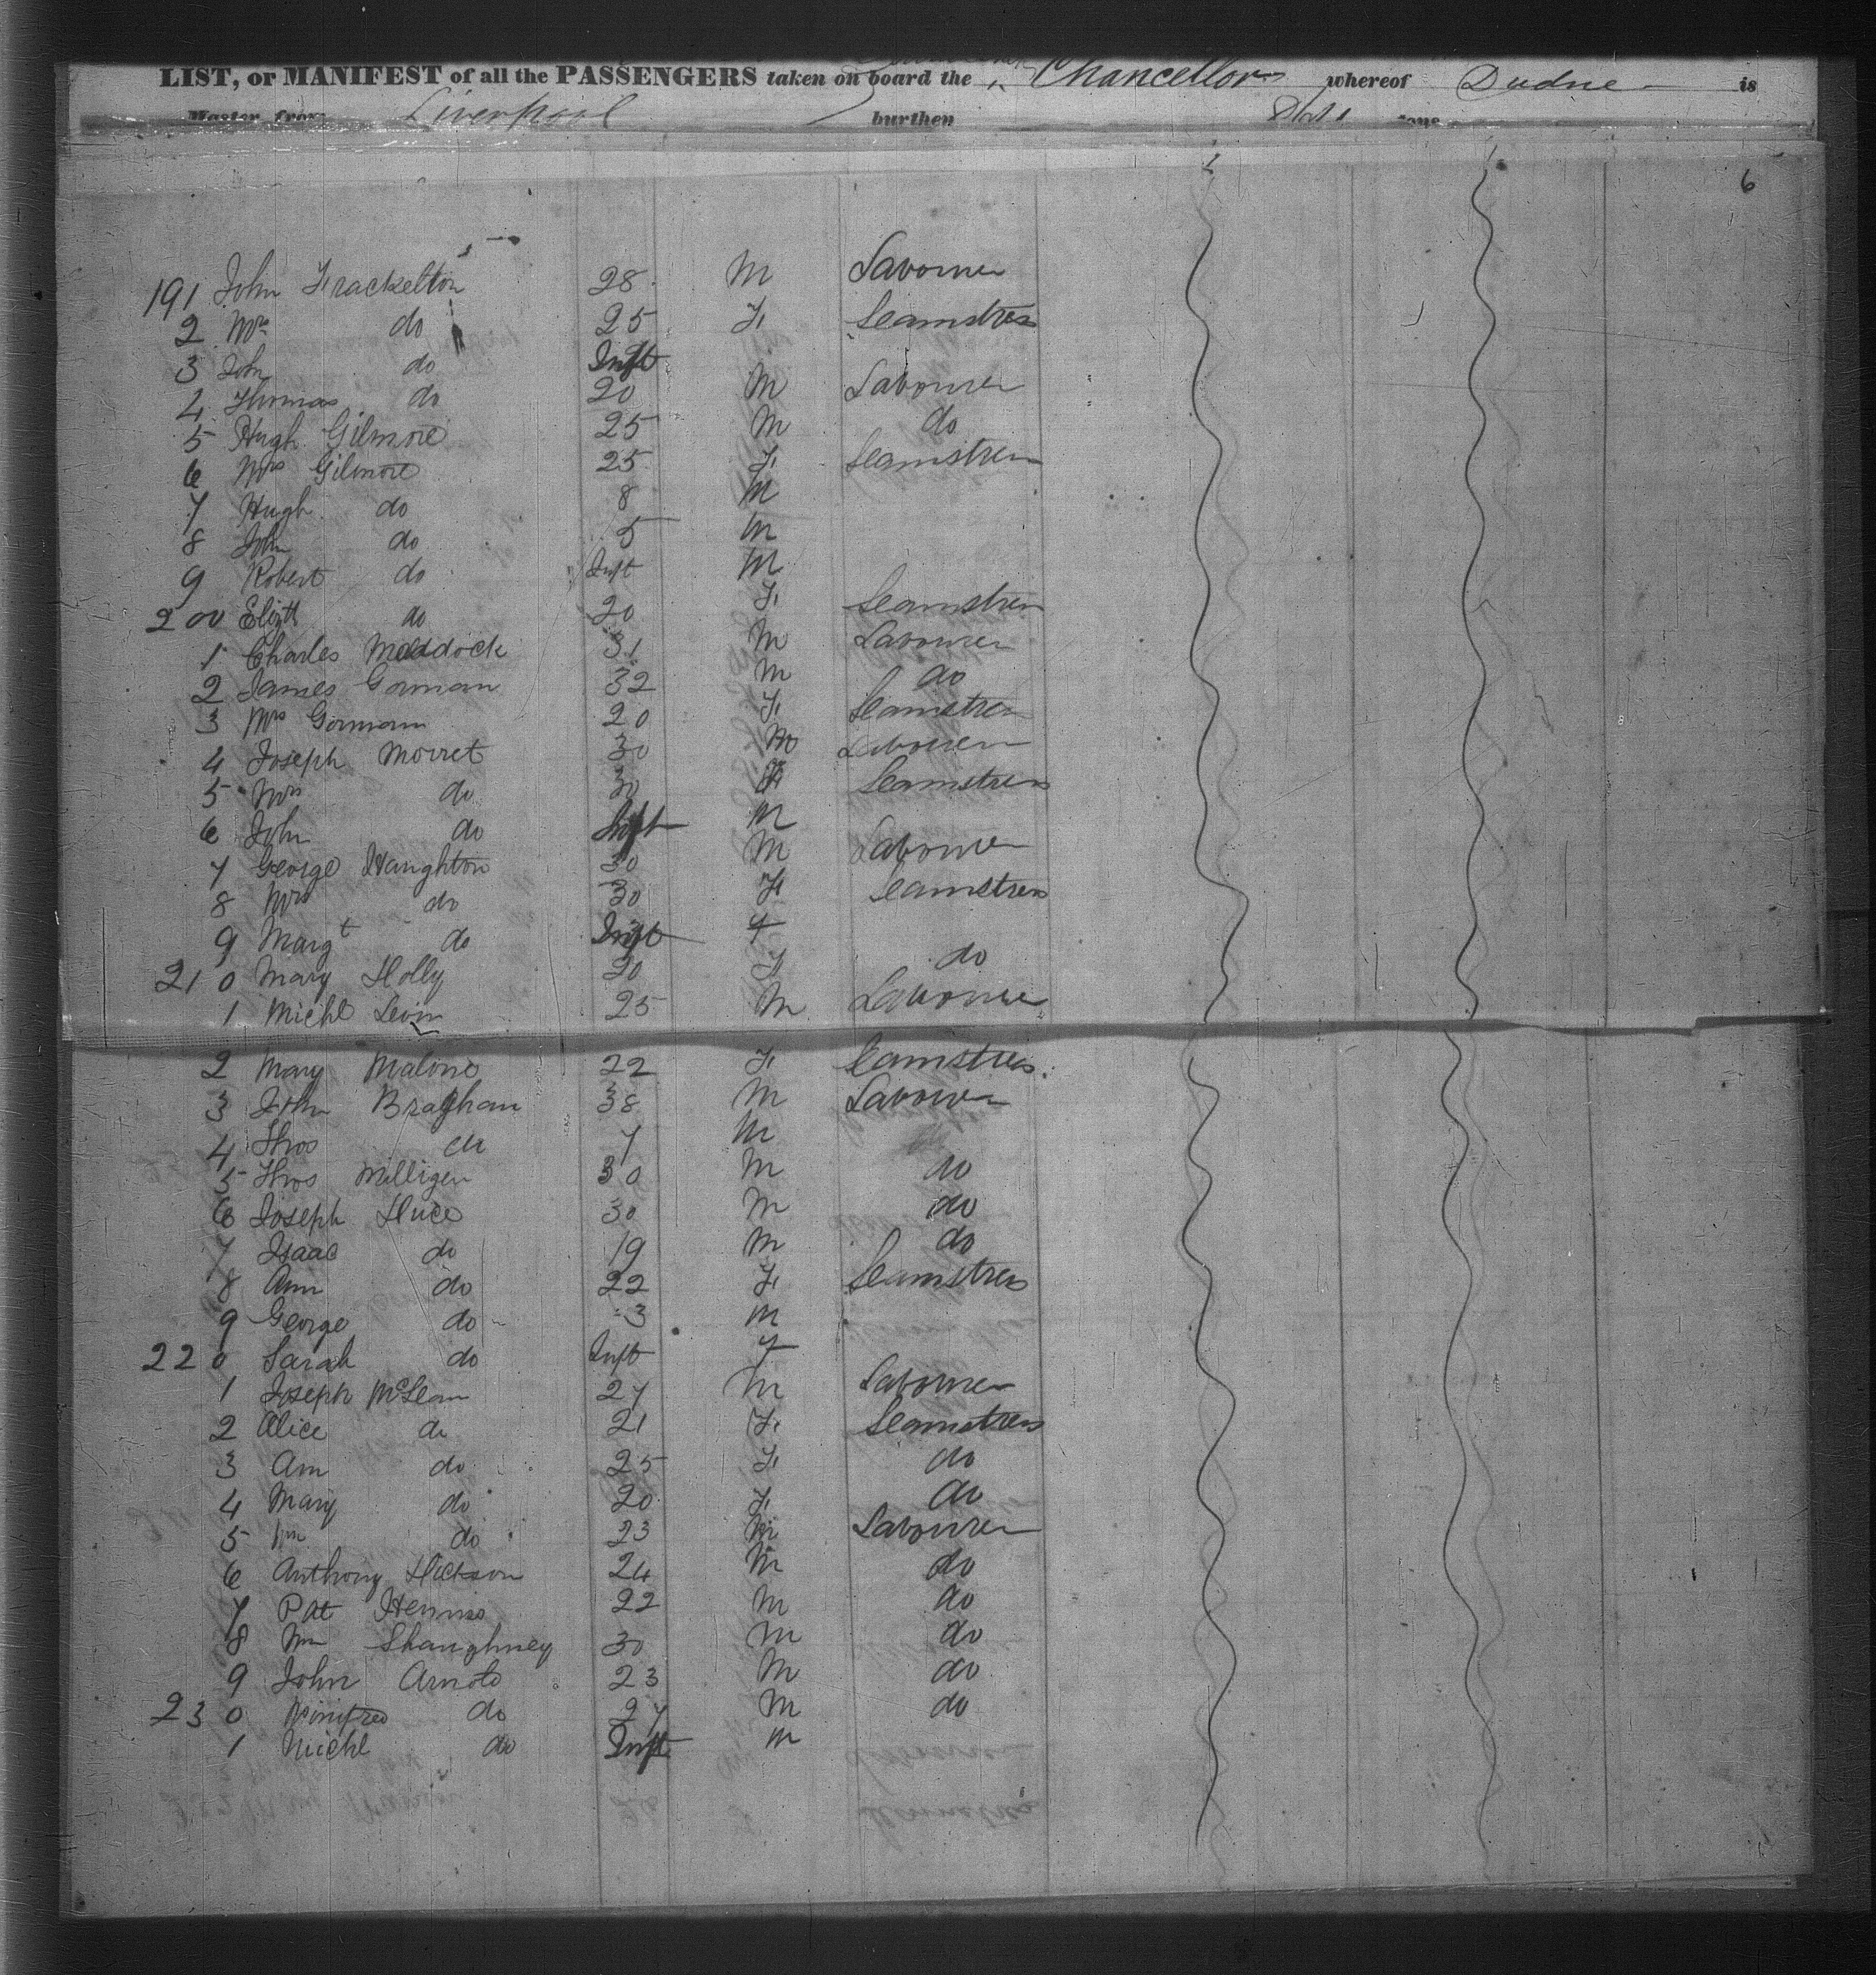 LIST, or MANIFEST of all the PASSENGERS taken on board the Chancellor whereof is
Master, from Liverpool burthen tons
6
191 John Frackelton 28 M Labourer
2 Mrs do 25 F Seamstress
3 John do Inft
4 Thomas do 20 M Labourer
5 Hugh Gilmore 25 M do
6 Mrs Gilmore 25 F Seamstress
7 Hugh do 8 M
8 John do 5 M
9 Robert do Inft M
200 Elizth do 20 F Seamstress
1 Charles Maddock 31 M Labourer
2 James Gorman 32 M do
3 Mrs Gorman 20 F Seamstress
4 Joseph Morret 30 M Labourer
5 Mrs do 30 F Seamstress
6 John do Inft M
7 George Haughton 30 M Labourer
8 Mrs do 30 F Seamstress
9 Margt do Inft F
210 Mary Holly 20 F do
1 Michl Levin 25 M Labourer
2 Mary Malone 22 F Seamstress
3 John Braghan 38 M Labourer
4 Thos do 7 M
5 Thos Milligen 30 M do
6 Joseph 30 M do
7 Isaac do 19 M do
8 Ann do 22 F Seamstress
9 George do 3 M
220 Sarah do Inft F
1 Joseph McLean 27 M Labourer
2 Alice do 21 F Seamstress
3 Ann do 25 F do
4 Mary do 20 F do
5 Wm do 23 M Labourer
6 Anthony Hickson 24 M do
7 Pat 22 M do
8 Wm Shaughney 30 M do
9 John Arnold 23 M do
230 Winifred do 27 M do
1 Michl do Inft M